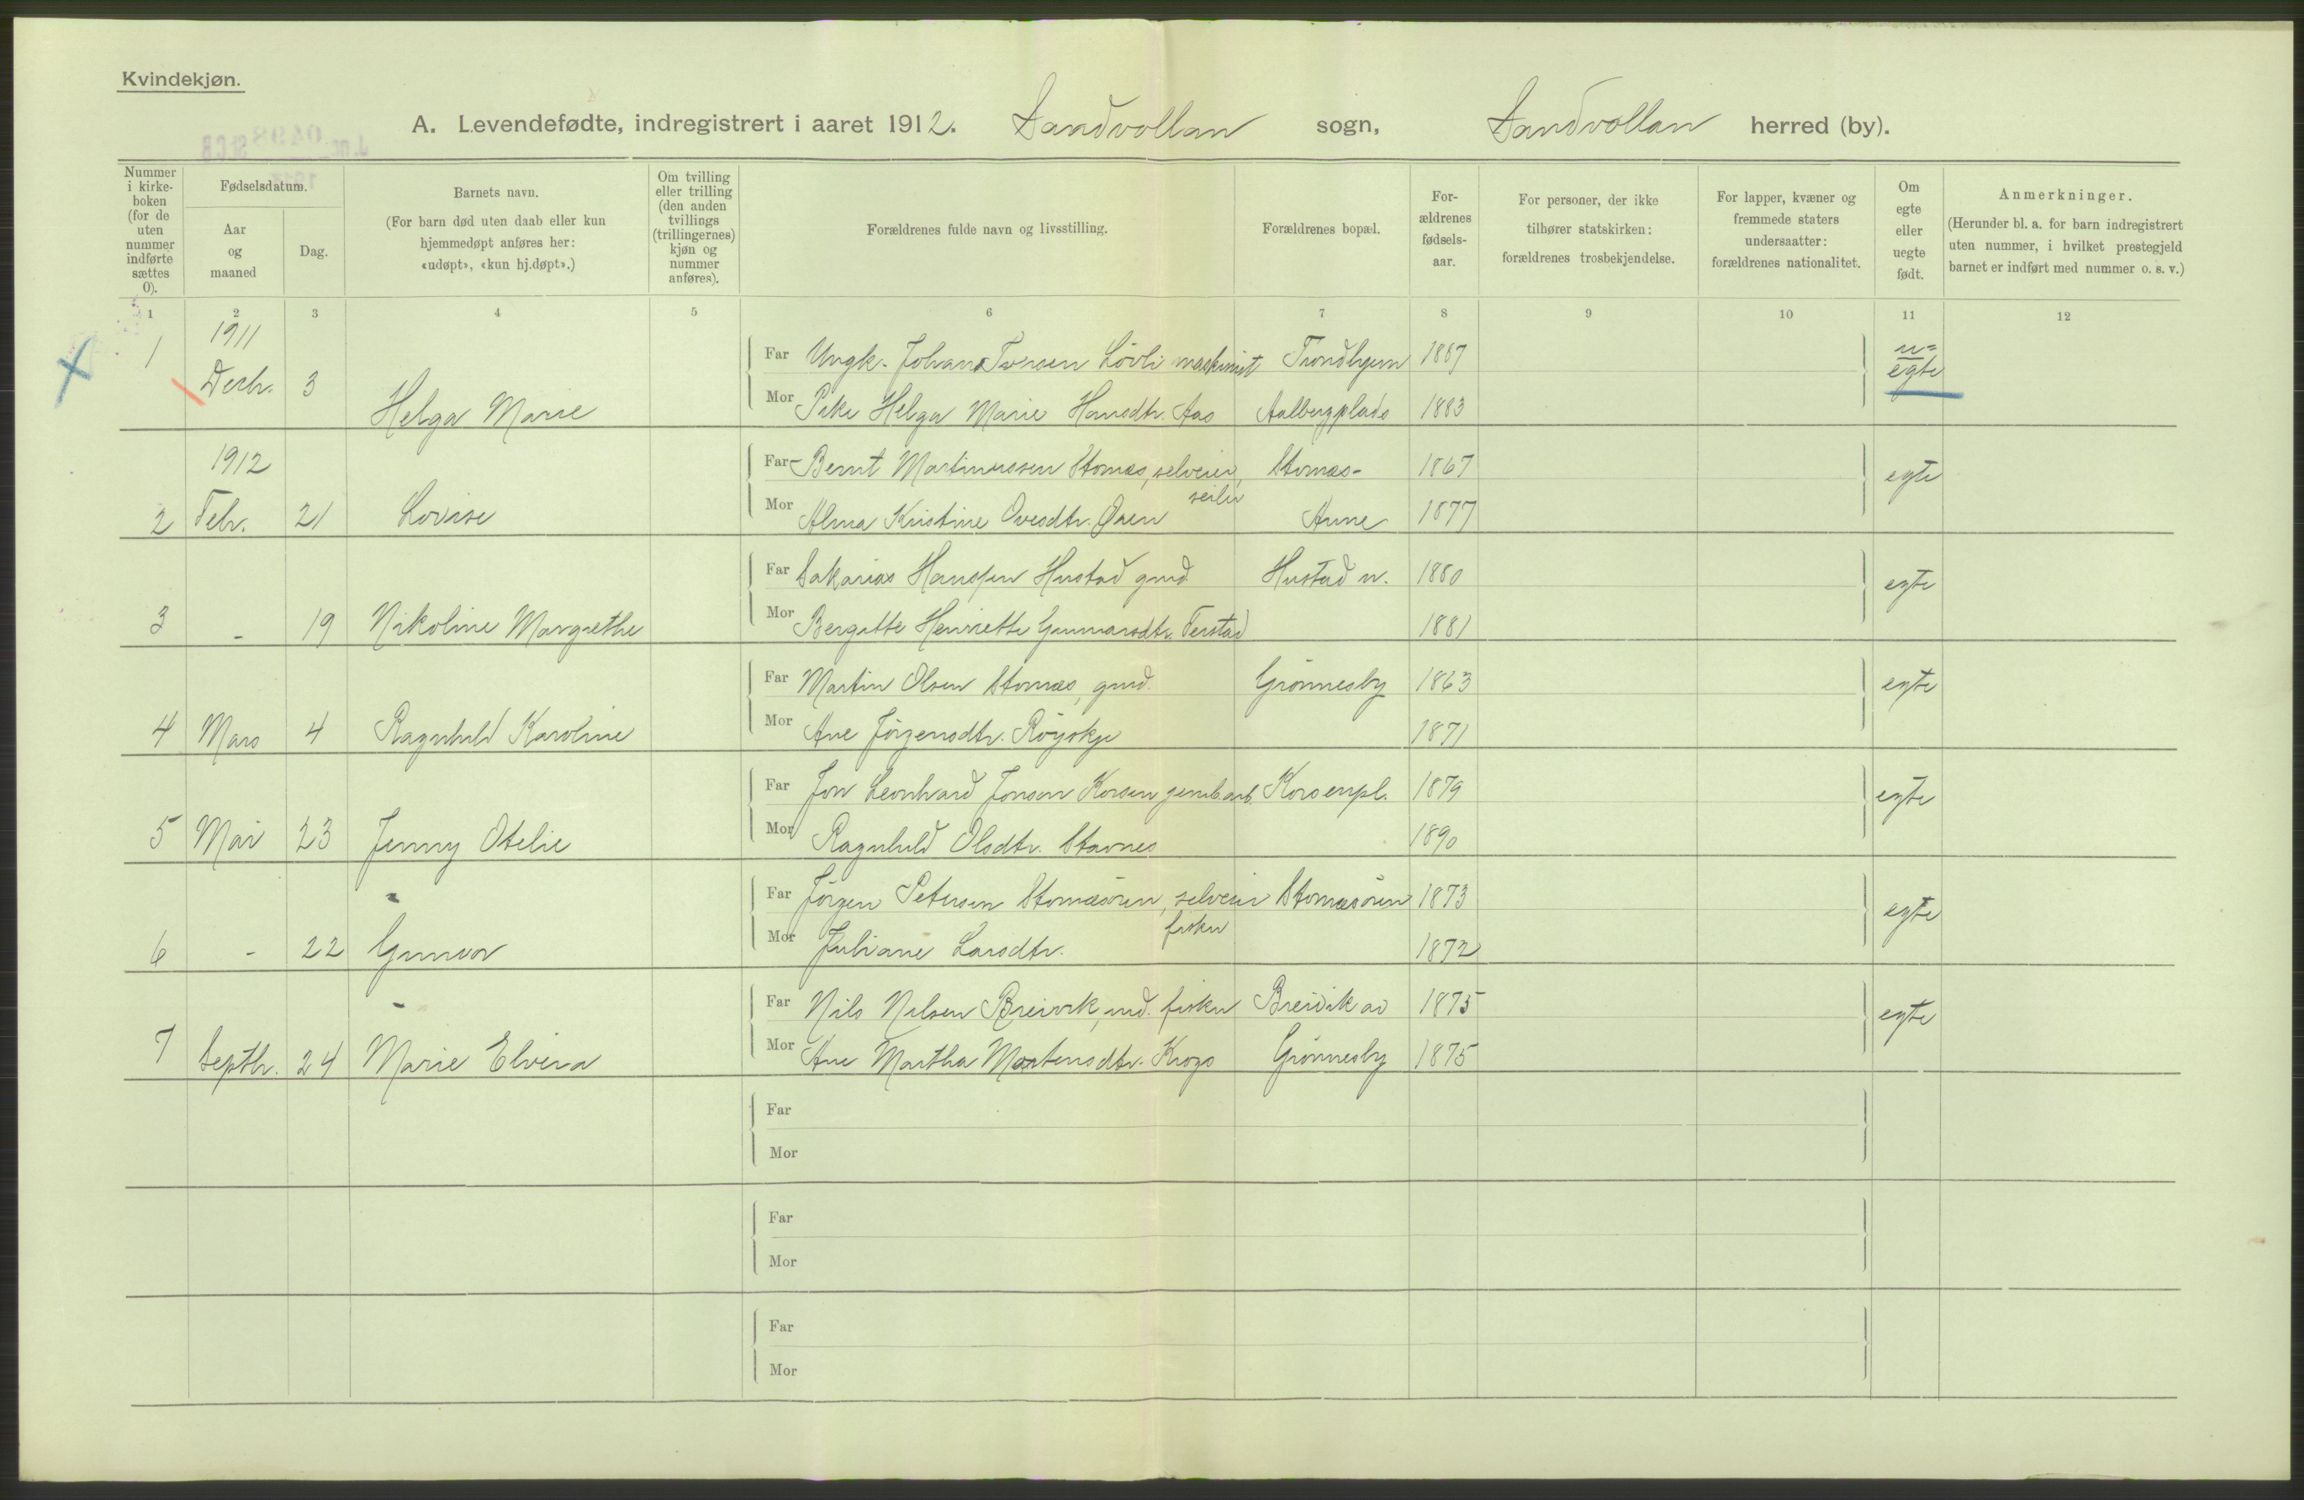 Kvindekjøn.
A. Levendefødte, indregistrert i aaret 1912. Sandvollan sogn, Sandvollan herred (by).
Nummer i kirke-boken (for de uten nummer indførte sættes 0).
Fødselsdatum.
Aar og maaned
Dag.
Barnets navn.
(For barn død uten daab eller kun hjemmedøpt anføres her: «udøpt», «kun hj.døpt».)
Om tvilling eller trilling (den anden tvillings (trillingernes) kjøn og nummer anføres).
Forældrenes fulde navn og livsstilling.
Forældrenes bopæl.
For-ældrenes fødsels-aar.
For personer, der ikke tilhører statskirken: forældrenes trosbekjendelse.
For lapper, kvæner og fremmede staters undersaatter: forældrenes nationalitet.
Om egte eller uegte født.
Anmerkninger.
(Herunder bl. a. for barn indregistrert uten nummer, i hvilket prestegjeld barnet er indført med nummer o. s. v.)
1 2 3 4 5 6 7 8 9 10 11 12
1911
1 Decbr. 3 Helga Marie
Far Ungk. Johan Løvli maskinist Trondhjem 1887 u=egte
Mor Pike Helga Marie Hansdtr. Aas Aalbergplads 1883
1912
2 Febr. 21 Lovise
Far Bernt Martinussen Stornæs, selveier, Stornæs- 1867 egte
seiler
Mor Alma Kristine Ovesdtr. Øien 1877
3 - 19 Nikoline Margrethe
Far Sakarias Hanssen Hustad gmd. Hustad n. 1880 egte
Mor Bergitte Henriette Gunnarsdtr. 1881
4 Mars 4 Ragnhild Karoline
Far Martin Olsen Stornæs, gmd. Grønnesby 1863 egte
Mor Ane Jørgensdtr. 1871
5 Mai 23 Jenny Otelie
Far Jon Leonhard Jonsen Korsen jernb.arb. Korsenpl. 1879 egte
Mor Ragnhild Olsdtr. Stavnes 1890
6 - 22 Gunvor
Far Jørgen Petersen Stornæsøren, selveier Stornæsøren 1873 egte
fisker
Mor Juliane Larsdtr. 1872
7 Septbr. 24 Marie Elvira
Far Nils Nilsen Breivik, ind. fisker Breivik av 1875 egte
Mor Ane Martha Mortensdtr. Krogs Grønnesby 1875
Far
Mor
Far
Mor
Far
Mor